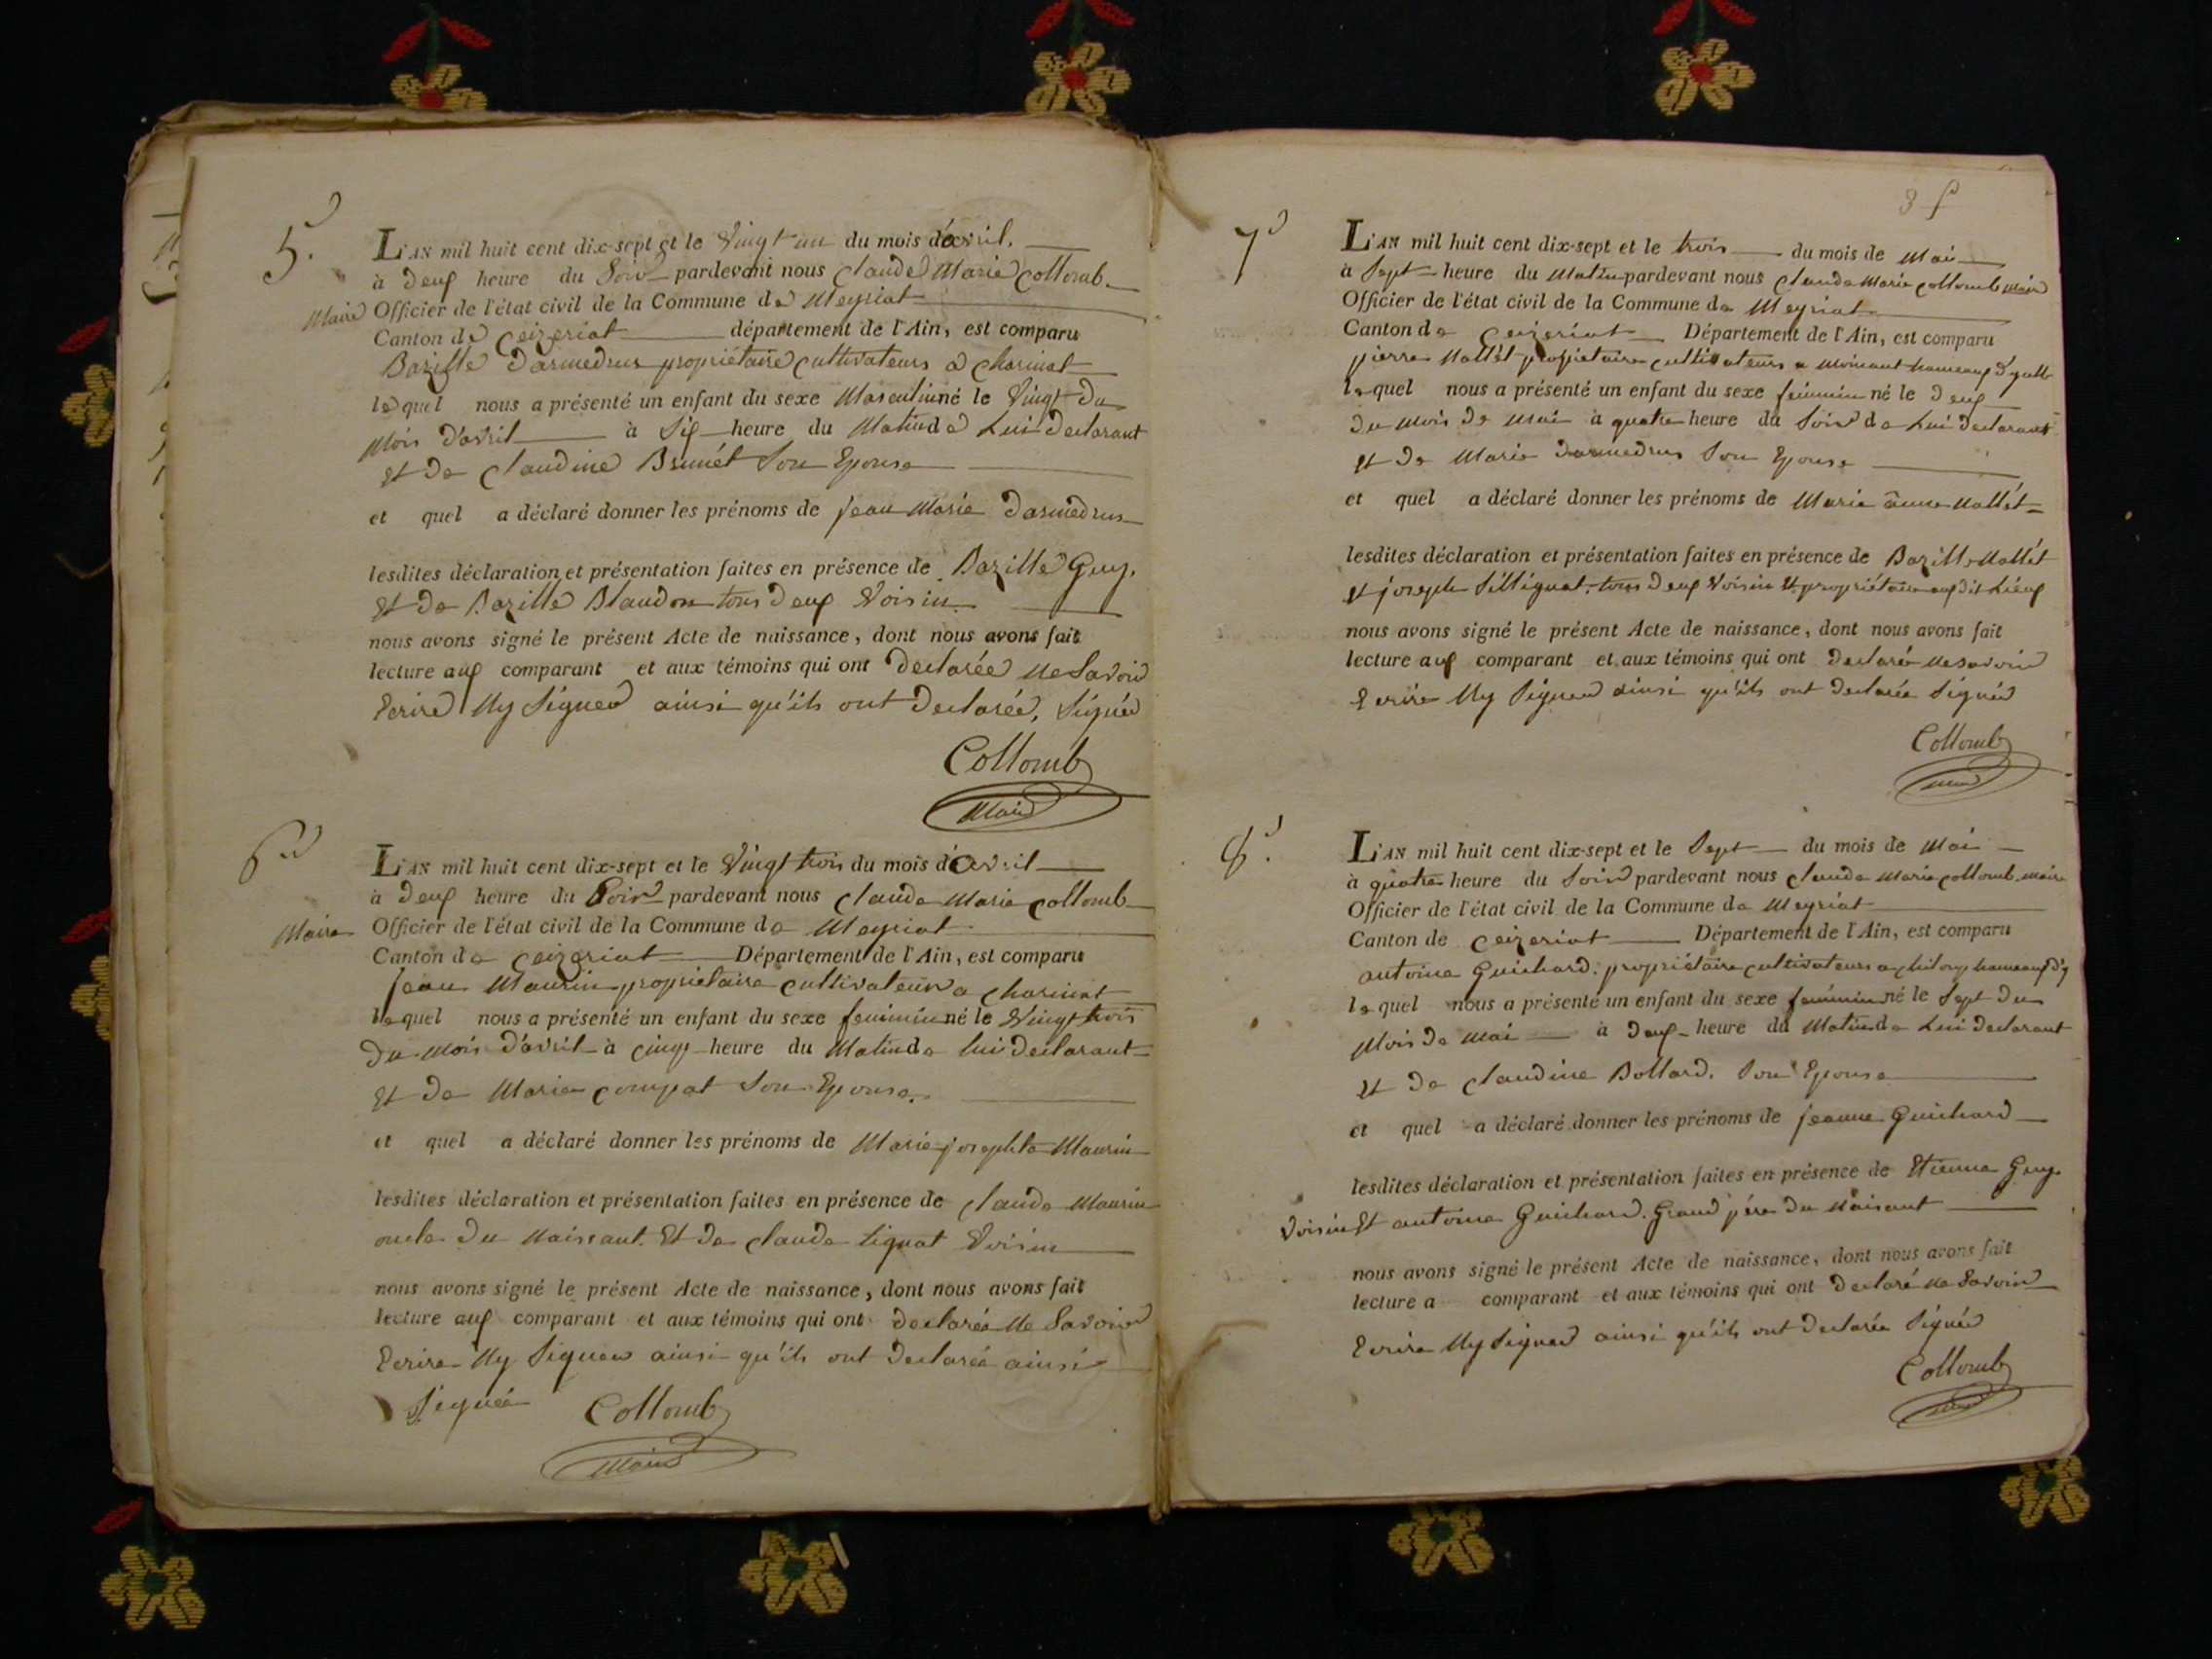 5.
L'AN mil huit cent dix-sept et le Vingt un du mois d'avril.
à deux heure du Soir pardevant nous Claude Marie Collomb
Maire Officier de l'état civil de la Commune de Meyriat
Canton de Ceizeriat département de l'Ain, est comparu
Bazille Darmedrus propriétaire cultivateurs a Charinat
lequel nous a présenté un enfant du sexe Masculin né le Vingt Du
Mois D'avril à Six heure du Matin de Lui Declarant
et De Claudine Brunét Son Epouse
et quel a déclaré donner les prénoms de jean Marie Darmedrus
lesdites déclaration et présentation faites en présence de Bazille Guy.
et De Bazille Blaudon tous Deux Voisin
nous avons signé le présent Acte de naissance, dont nous avons fait
lecture aux comparant et aux témoins qui ont Declarée Ne Savoir
Ecrire Ny Signer ainsi qu'ils ont Declarée, Signée
Collomb
Maire
6
L'AN mil huit cent dix-sept et le Vingt trois du mois d'avril
à Deux heure du Soir pardevant nous Claude Marie Collomb
Maire Officier de l'état civil de la Commune de Meyriat
Canton de Ceizeriat Département de l'Ain, est comparu
jean Maurin propriétaire cultivateur a Charinat
lequel nous a présenté un enfant du sexe feminin né le Vingt trois
Du Mois D'avril à cinq heure du Matin de lui Declarant
et De Marie Compat Son Epouse.
et quel a déclaré donner les prénoms de Marie josephte Maurin
lesdites déclaration et présentation faites en présence de Claude Maurin
oncle Du Naissant. Et De Claude tignat Voisin
nous avons signé le présent Acte de naissance, dont nous avons fait
lecture aux comparant et aux témoins qui ont declarée Ne Savoir
Ecrire Ny Signer ainsi qu'ils ont Declarée ainsi
Signée Collomb
Maire
7
L'AN mil huit cent dix-sept et le trois du mois de Mai
à Sept heure du Matin pardevant nous Claude Marie Collomb Maire
Officier de l'état civil de la Commune de Meyriat
Canton de Ceizeriat Département de l'Ain, est comparu
pierre Nallét propriétaire cultivateurs a hameaux
lequel nous a présenté un enfant du sexe féminin né le Deux
Du Mois De Mai à quatre heure du Soir de Lui Declarant
et De Marie Darmedrus Son Epouse
et quel a déclaré donner les prénoms de Marie anne Nallét
lesdites déclaration et présentation faites en présence de Bazille Nallét
et joseph tous Deux Voisin et propriétaire auxdit Lieux
nous avons signé le présent Acte de naissance, dont nous avons fait
lecture aux comparant et aux témoins qui ont Declaré Ne Savoir
Ecrire Ny Signer ainsi qu'ils ont Declarée Signée
Collomb
Maire
8.
L'AN mil huit cent dix-sept et le Sept du mois de Mai
à quatre heure du Soir pardevant nous Claude Marie Collomb Maire
Officier de l'état civil de la Commune de Meyriat
Canton de Ceizeriat Département de l'Ain, est comparu
antoine Guichard. propriétaire cultivateurs a hameaux
lequel nous a présenté un enfant du sexe feminin né le Sept Du
Mois De Mai à Deux heure du Matin de Lui Declarant
et De Claudine Bollard. Son Epouse
et quel a déclaré donner les prénoms de jeanne Guichard
lesdites déclaration et présentation faites en présence de Etienne Guy
Voisin Et antoine Guichard. Grand pére Du Naisant
nous avons signé le présent Acte de naissance, dont nous avons fait
lecture a comparant et aux témoins qui ont Declaré Ne Savoir
Ecrire Ny Signer ainsi qu'ils ont Declarée Signée
Collomb
Maire